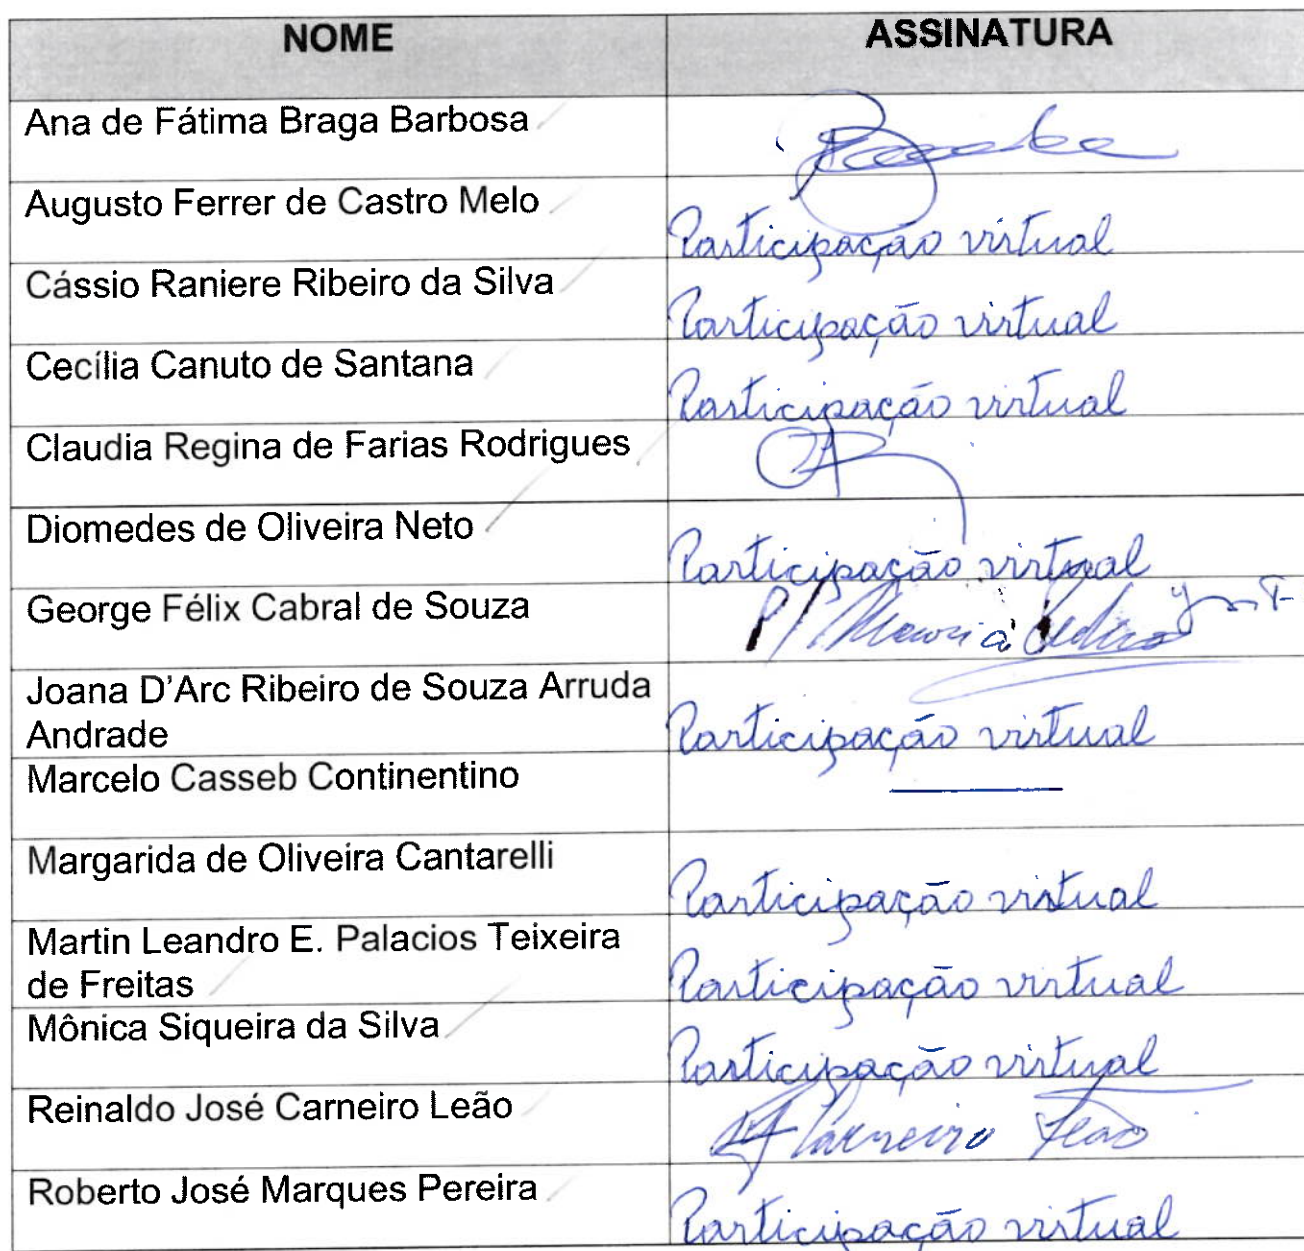 NOME ASSINATURA
Ana de Fátima Braga Barbosa
Augusto Ferrer de Castro Melo Participação virtual
Cássio Raniere Ribeiro da Silva Participação virtual
Cecília Canuto de Santana Participação virtual
Claudia Regina de Farias Rodrigues
Diomedes de Oliveira Neto Participação virtual
George Félix Cabral de Souza P/
Joana D'Arc Ribeiro de Souza Arruda
Andrade Participação virtual
Marcelo Casseb Continentino
Margarida de Oliveira Cantarelli Participação virtual
Martin Leandro E. Palacios Teixeira
de Freitas Participação virtual
Mônica Siqueira da Silva Participação virtual
Reinaldo José Carneiro Leão Carneiro Leão
Roberto José Marques Pereira Participação virtual